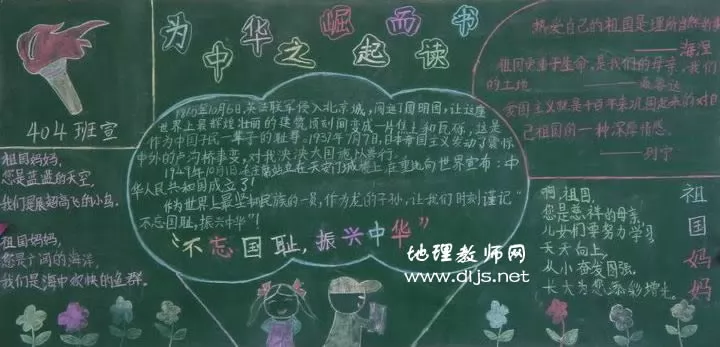 为中华之崛起而读书
404班宣
祖国妈妈,
您是蓝蓝的天空,
我们是展翅高飞的小鸟。
祖国妈妈,
您是广阔的海洋,
我们是海中欢快的鱼群。
1860年10月6日,英法联军侵入北京城,闯进了圆明园,让这座
世界上最辉煌壮丽的建筑顷刻间变成一片焦土和瓦砾,这是
作为中国子民一辈子的耻辱。1937年7月7日,日本帝国主义发动了震惊
中外的卢沟桥事变,对我泱泱大国
1949年10月1日,毛主席站在天安门城楼上,庄重地向世界宣布:中
华人民共和国成立了!
作为世界上最坚和民族的一员,作为龙的子孙,让我们时刻谨记“
不忘国耻,振兴中华”!
“不忘国耻,振兴中华”
热爱自己的祖国是理所当然的事
——海涅
祖国更重于生命,是我们的母亲,我们
的土地——聂鲁达
爱国主义就是千百年来巩固起来的对自
己祖国的一种深厚情感。
——列宁
祖国妈妈
啊,祖国,
您是慈祥的母亲,
儿女们要努力学习,
天天向上,
从小奋发图强,
长大为您添彩增光。
地理教师网
www.dljs.net